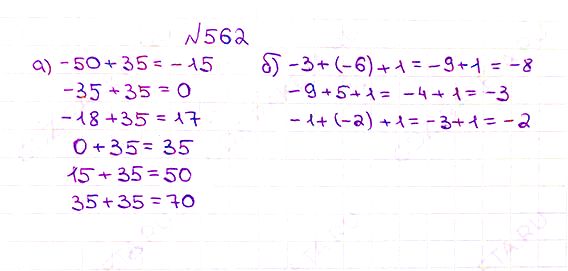 №562
а) -50+35=-15
-35+35=0
-18+35=17
0+35=35
15+35=50
35+35=70
б) -3+(-6)+1=-9+1=-8
-9+5+1=-4+1=-3
-1+(-2)+1=-3+1=-2